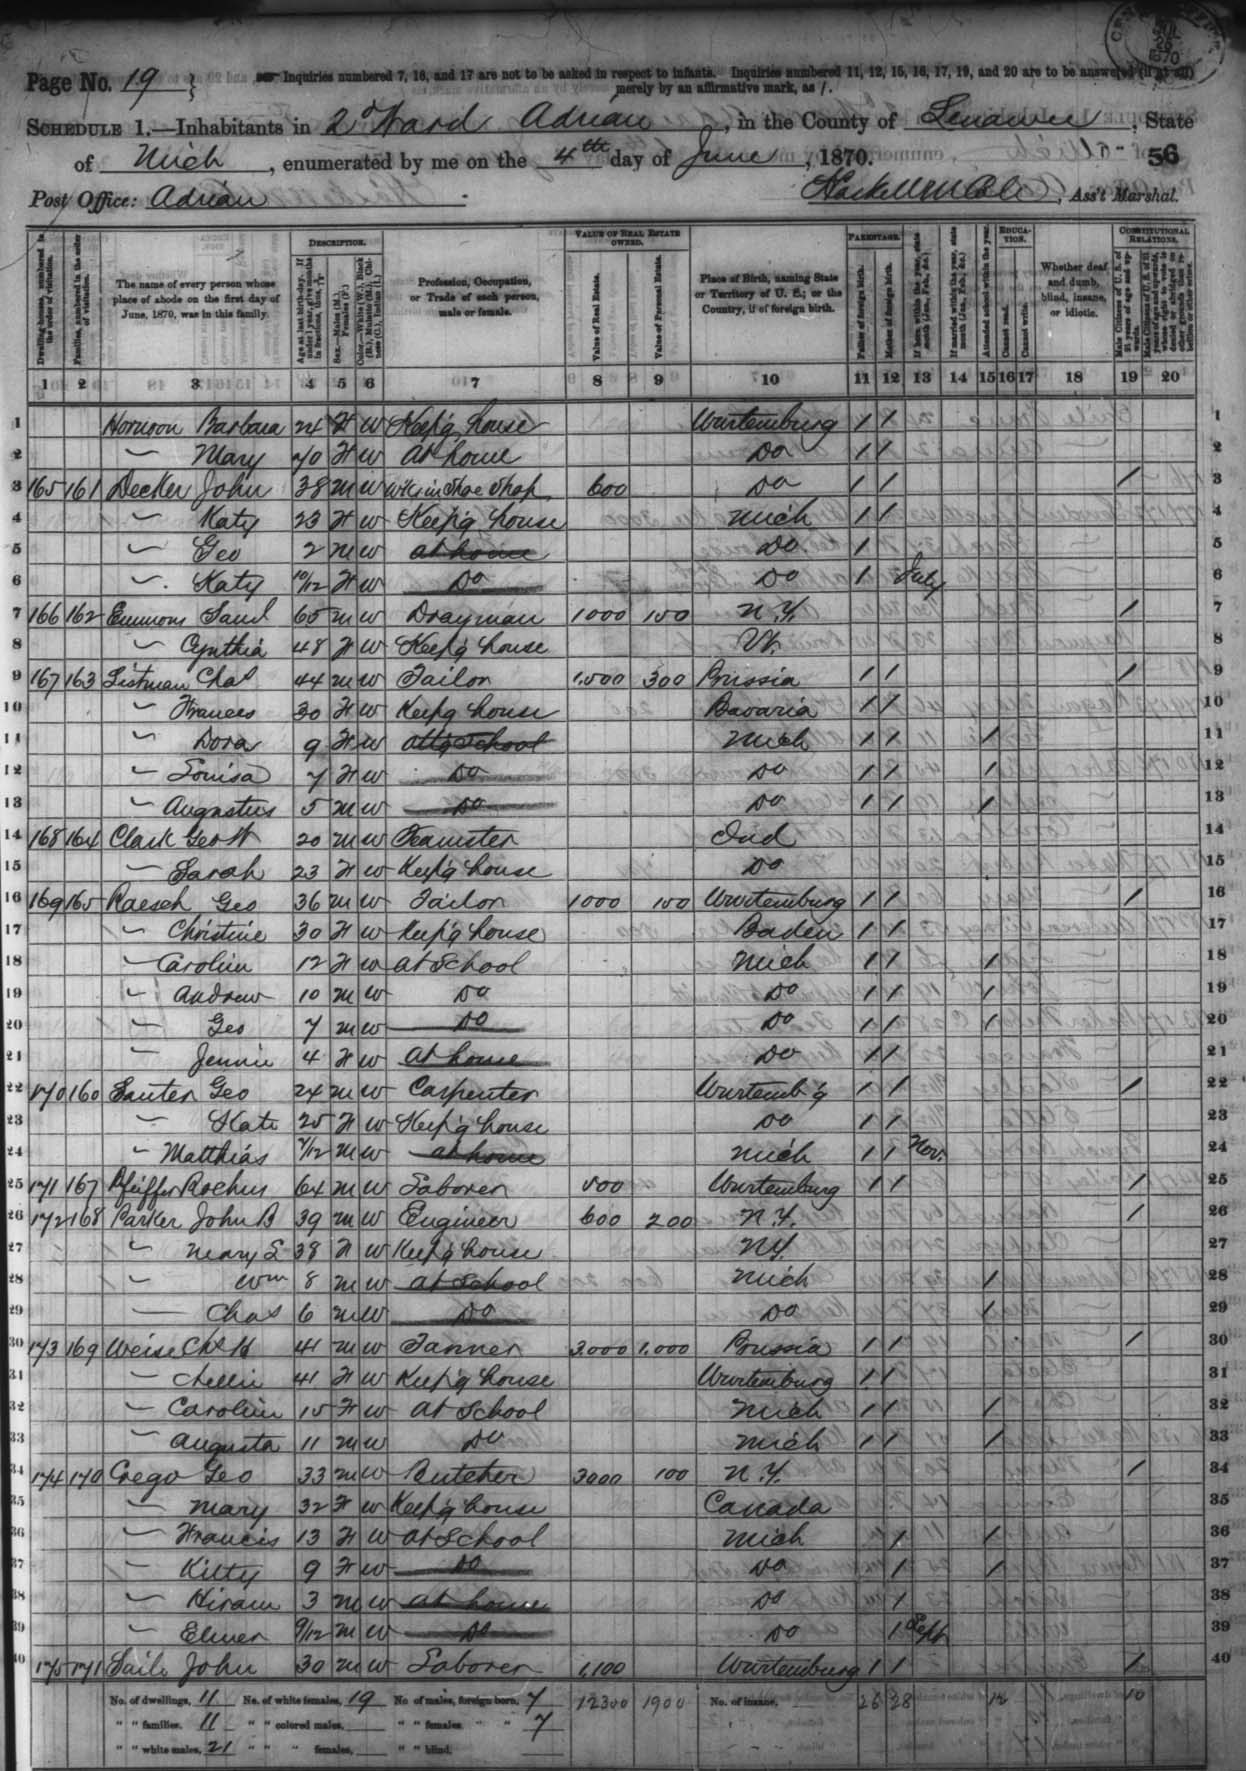 Page No. 19 } Inquiries numbered 7, 16, and 17 are not to be asked in respect to infants. Inquiries numbered 11, 12, 15, 16, 17, 19, and 20 are to be answered (if at all)
merely by an affirmative mark, as /.
SCHEDULE 1.—Inhabitants in 2d Ward Adrian, in the County of Lenawee, State
of Mich, enumerated by me on the 4th day of June, 1870. 56
Post Office: Adrian , Ass't Marshal.
DESCRIPTION. VALUE OF REAL ESTATE OWNED. PARENTAGE. EDUCATION. CONSTITUTIONAL RELATIONS.
Dwelling-houses, numbered in the order of visitation.
Families, numbered in the order of visitation.
The name of every person whose place of abode on the first day of June, 1870, was in this family.
Age at last birth-day. If under 1 year, give months in fractions, thus, 3/12
Sex.—Males (M.), Females (F.)
Color.—White (W.), Black (B.), Mulatto (M.), Chinese (C.), Indian (I.)
Profession, Occupation, or Trade of each person, male or female.
Value of Real Estate.
Value of Personal Estate.
Place of Birth, naming State or Territory of U. S.; or the Country, if of foreign birth.
Father of foreign birth.
Mother of foreign birth.
If born within the year, state month (Jan., Feb., &c.)
If married within the year, state month (Jan., Feb., &c.)
Attended school within the year.
Cannot read.
Cannot write.
Whether deaf and dumb, blind, insane, or idiotic.
Male Citizens of U. S. of 21 years of age and upwards.
Male Citizens of U. S. of 21 years of age and upwards, whose right to vote is denied or abridged on other grounds than rebellion or other crime.
1 2 3 4 5 6 7 8 9 10 11 12 13 14 15 16 17 18 19 20
1 Barbara 24 F W Keep'g house Wurtemburg / / 1
2 " Mary 70 F W At home Do / / 2
3 165 161 Decker John 38 M W Wks in Shoe Shop 600 Do / / / 3
4 " Katy 23 F W Keep'g house Mich / / 4
5 " Geo 2 M W at home Do / 5
6 " Katy 10/12 F W Do Do / July 6
7 166 162 Emmons Saml 65 M W Drayman 1000 100 N.Y. / 7
8 " Cynthia 48 F W Keep'g house Vt. 8
9 167 163 Listman Chas 44 M W Tailor 1.500 300 Prussia / / / 9
10 " Frances 30 F W Keep'g house Bavaria / / 10
11 " Dora 9 F W attg School Mich / / / 11
12 " Louisa 7 F W Do Do / / / 12
13 " Augustus 5 M W Do Do / / / 13
14 168 164 Clark Geo W 20 M W Teamster Ind 14
15 " Sarah 23 F W Keep'g house Do 15
16 169 165 Raesch Geo 36 M W Tailor 1000 100 Wurtemburg / / / 16
17 " Christine 30 F W Keep'g house Baden / / 17
18 " Carolin 12 F W At School Mich / / / 18
19 " Andrew 10 M W Do Do / / / 19
20 " Geo 7 M W Do Do / / / 20
21 " Jennie 4 F W At home Do / / 21
22 170 166 Sauter Geo 24 M W Carpenter Wurtemb'g / / / 22
23 " Kate 25 F W Keep'g house Do / / 23
24 " Matthias 7/12 M W at home Mich / / Nov. 24
25 171 167 Pfeiffer Rochus 64 M W Laborer 500 Wurtemburg / / / 25
26 172 168 Parker John B 39 M W Engineer 600 200 N.Y. / 26
27 " Mary L 38 F W Keep'g house N.Y. 27
28 " Wm 8 M W at School Mich / 28
29 " Chas 6 M W Do Do / 29
30 173 169 Weise Chs H 41 M W Tanner 3.000 1.000 Prussia / / / 30
31 " 41 F W Keep'g house Wurtemburg / / 31
32 " Carolin 15 F W At School Mich / / / 32
33 " Augusta 11 M W Do Mich / / / 33
34 174 170 Crego Geo 33 M W Butcher 3000 100 N.Y. / 34
35 " Mary 32 F W Keep'g house Canada 35
36 " Francis 13 F W At School Mich / / 36
37 " Kitty 9 F W Do Do / / 37
38 " Hiram 3 M W At home Do / 38
39 " Elmer 9/12 M W Do Do / Sept 39
40 175 171 Saile John 30 M W Laborer 1,100 Wurtemburg / / / 40
No. of dwellings, 11 No. of white females, 19 No. of males, foreign born, 7 12300 1900 No. of insane, 26 28 12 10
" " families. 11 " " colored males, " " females " " 7
" " white males, 21 " " " females, " " blind,